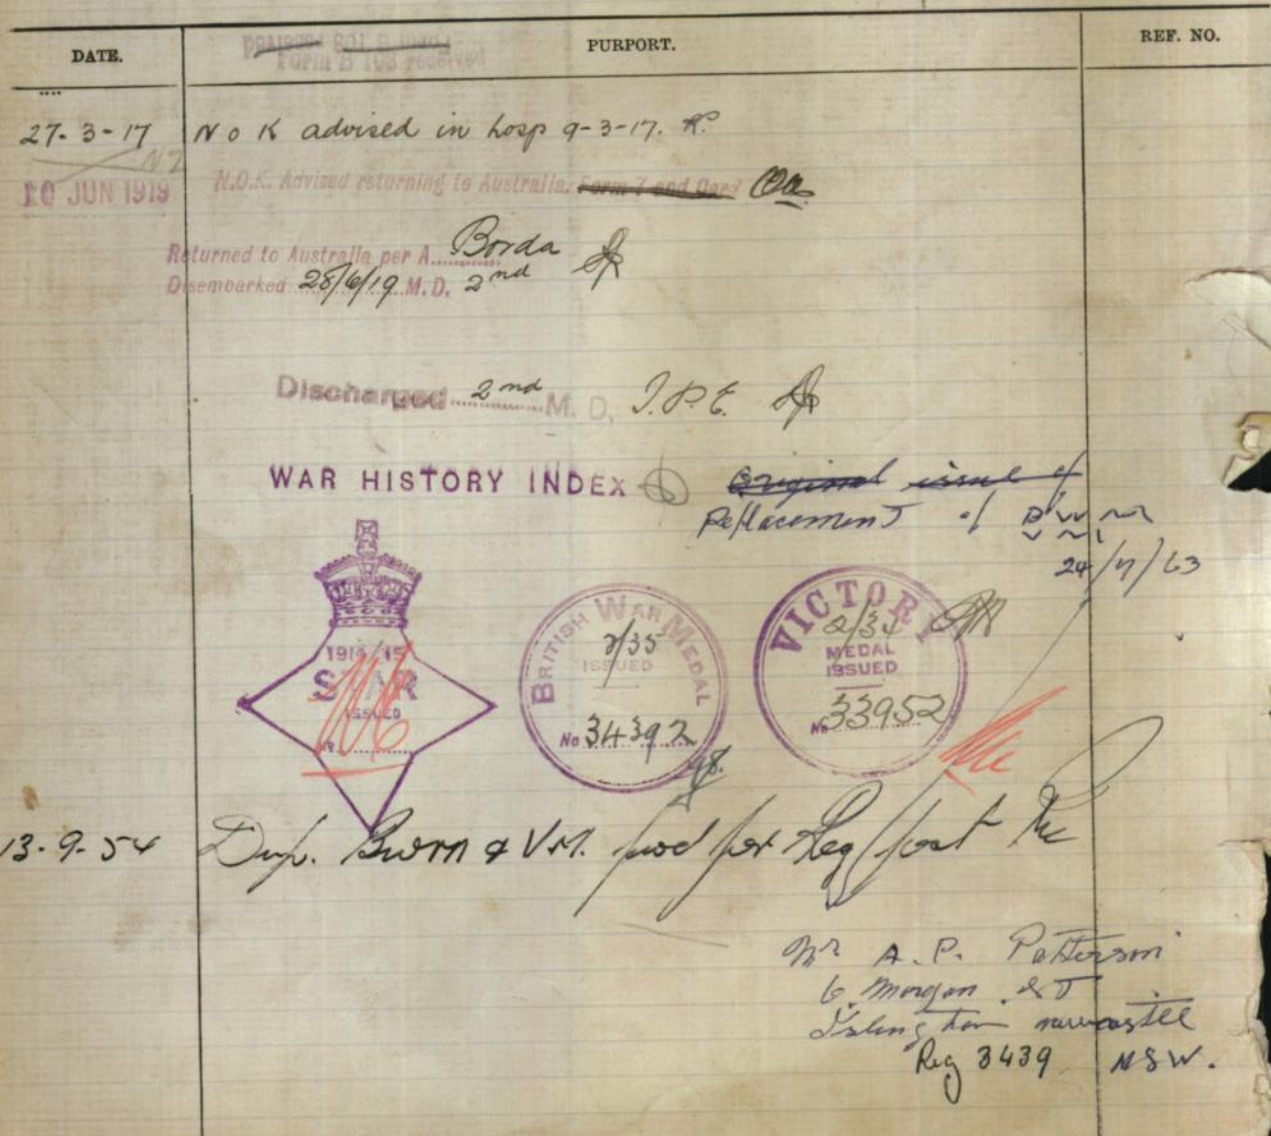 DATE. PURPORT. REF. NO.
Form B 103 received
27-3-17 N O K advised in hosp 9-3-17.
NZ
20 JUN 1919 N.O.K. Advised returning to Australia. Form 7 and Card
Returned to Australia per A. Borda
Disembarked 28/6/19 M.D. 2nd
Discharged 2nd M. D. T.P.E.
WAR HISTORY INDEX
Original issue of
Replacement of BWM
24/7/63
1914/15
STAR
ISSUED
NR
BRITISH WAR MEDAL
2/35
ISSUED
No 34392
VICTORY
2/34
MEDAL
ISSUED
No 33952
13-9-54 Dup. Bwm & V.M. for Reg post
Mr A. P. Patterson
6. Morgan ST
Islington newcastle
Reg 3439 NSW.